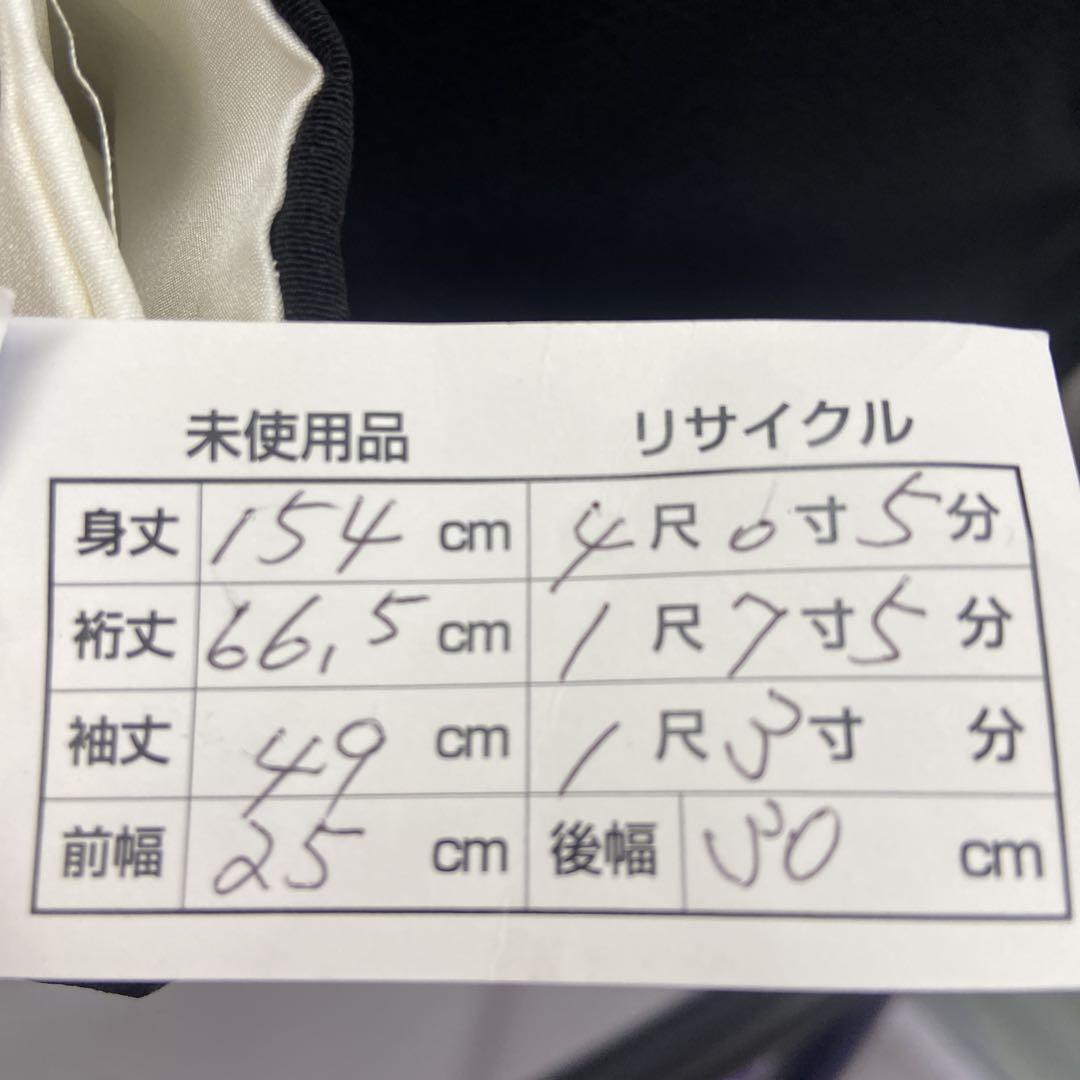 未使用品 リサイクル
身丈 154 cm 4 尺 0 寸 5 分
裄丈 66,5 cm 1 尺 7 寸 5 分
袖丈 49 cm 1 尺 3 寸 分
前幅 25 cm 後幅 30 cm